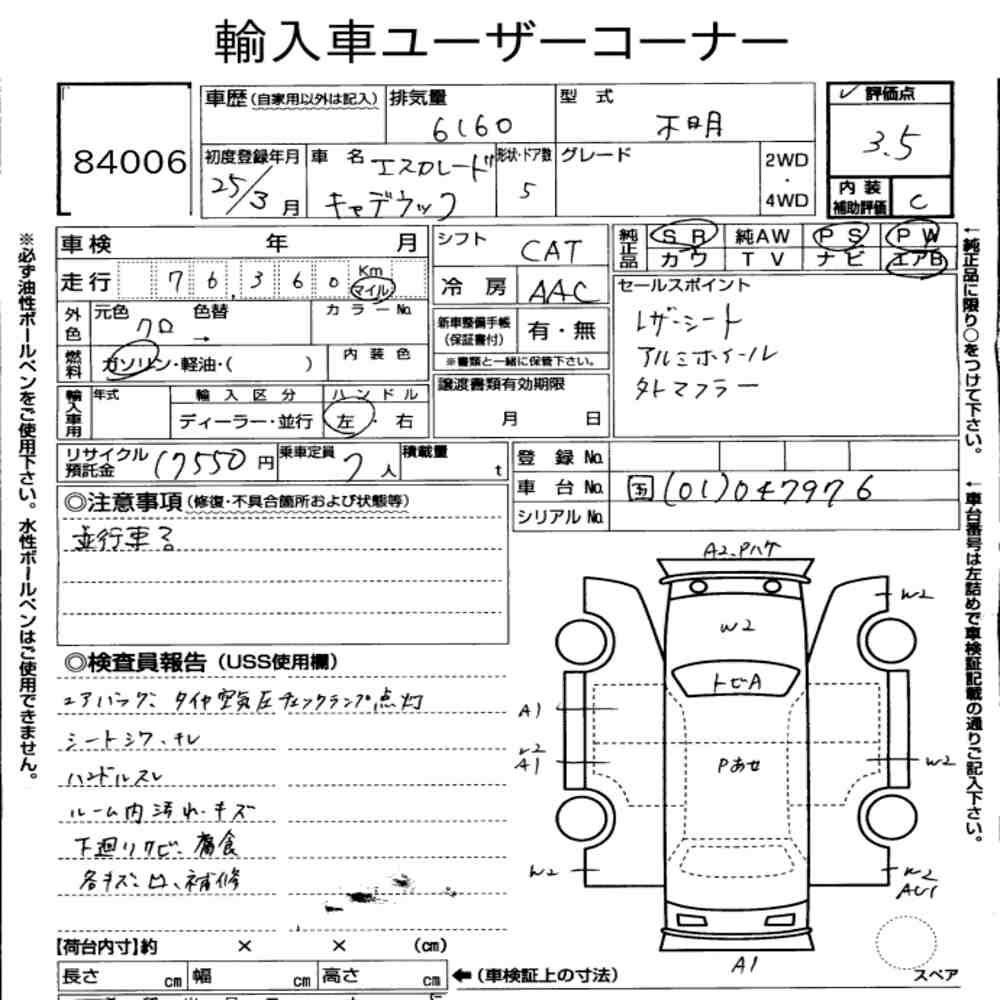 輸入車ユーザーコーナー
84006
車歴(自家用以外は記入) 排気量 6160 型式 不明
✓評価点 3.5
初度登録年月 25/3月 車名 エスカレード キャデラック 形状・ドア数 5 グレード 2WD・4WD
内装補助評価 C
車検 年 月
走行 76,360 Km マイル
外色 元色 クロ 色替 → カラーNo.
燃料 ガソリン・軽油・( ) 内装色
輸入車用 年式 輸入区分 ディーラー・並行 ハンドル 左・右
リサイクル預託金 17550円 乗車定員 7人 積載量 t
シフト CAT
冷房 AAC
新車整備手帳(保証書付) 有・無
※書類と一緒に保管下さい。
譲渡書類有効期限
月 日
純正品 SR 純AW PS PW
カワ TV ナビ エアB
セールスポイント
レザーシート
アルミホイール
外マフラー
登録No.
車台No. 国(01)047976
シリアルNo.
◎注意事項(修復・不具合箇所および状態等)
並行車
◎検査員報告(USS使用欄)
エアバッグ、タイヤ空気圧チェックランプ点灯
シートシワ、チレ
ハンドルスレ
ルーム内汚れ・キズ
下廻りサビ、腐食
各キズ、凹、補修
【荷台内寸】約 × × (cm)
長さ cm 幅 cm 高さ cm ←(車検証上の寸法)
A2、Pハゲ
W2
W2
トビA
A1
W2
A1
Pあせ
W2
W2
W2
AU1
A1
スペア
※必ず油性ボールペンをご使用下さい。水性ボールペンはご使用できません。
←純正品に限り○をつけて下さい。
←車台番号は左詰めで車検証記載の通りご記入下さい。